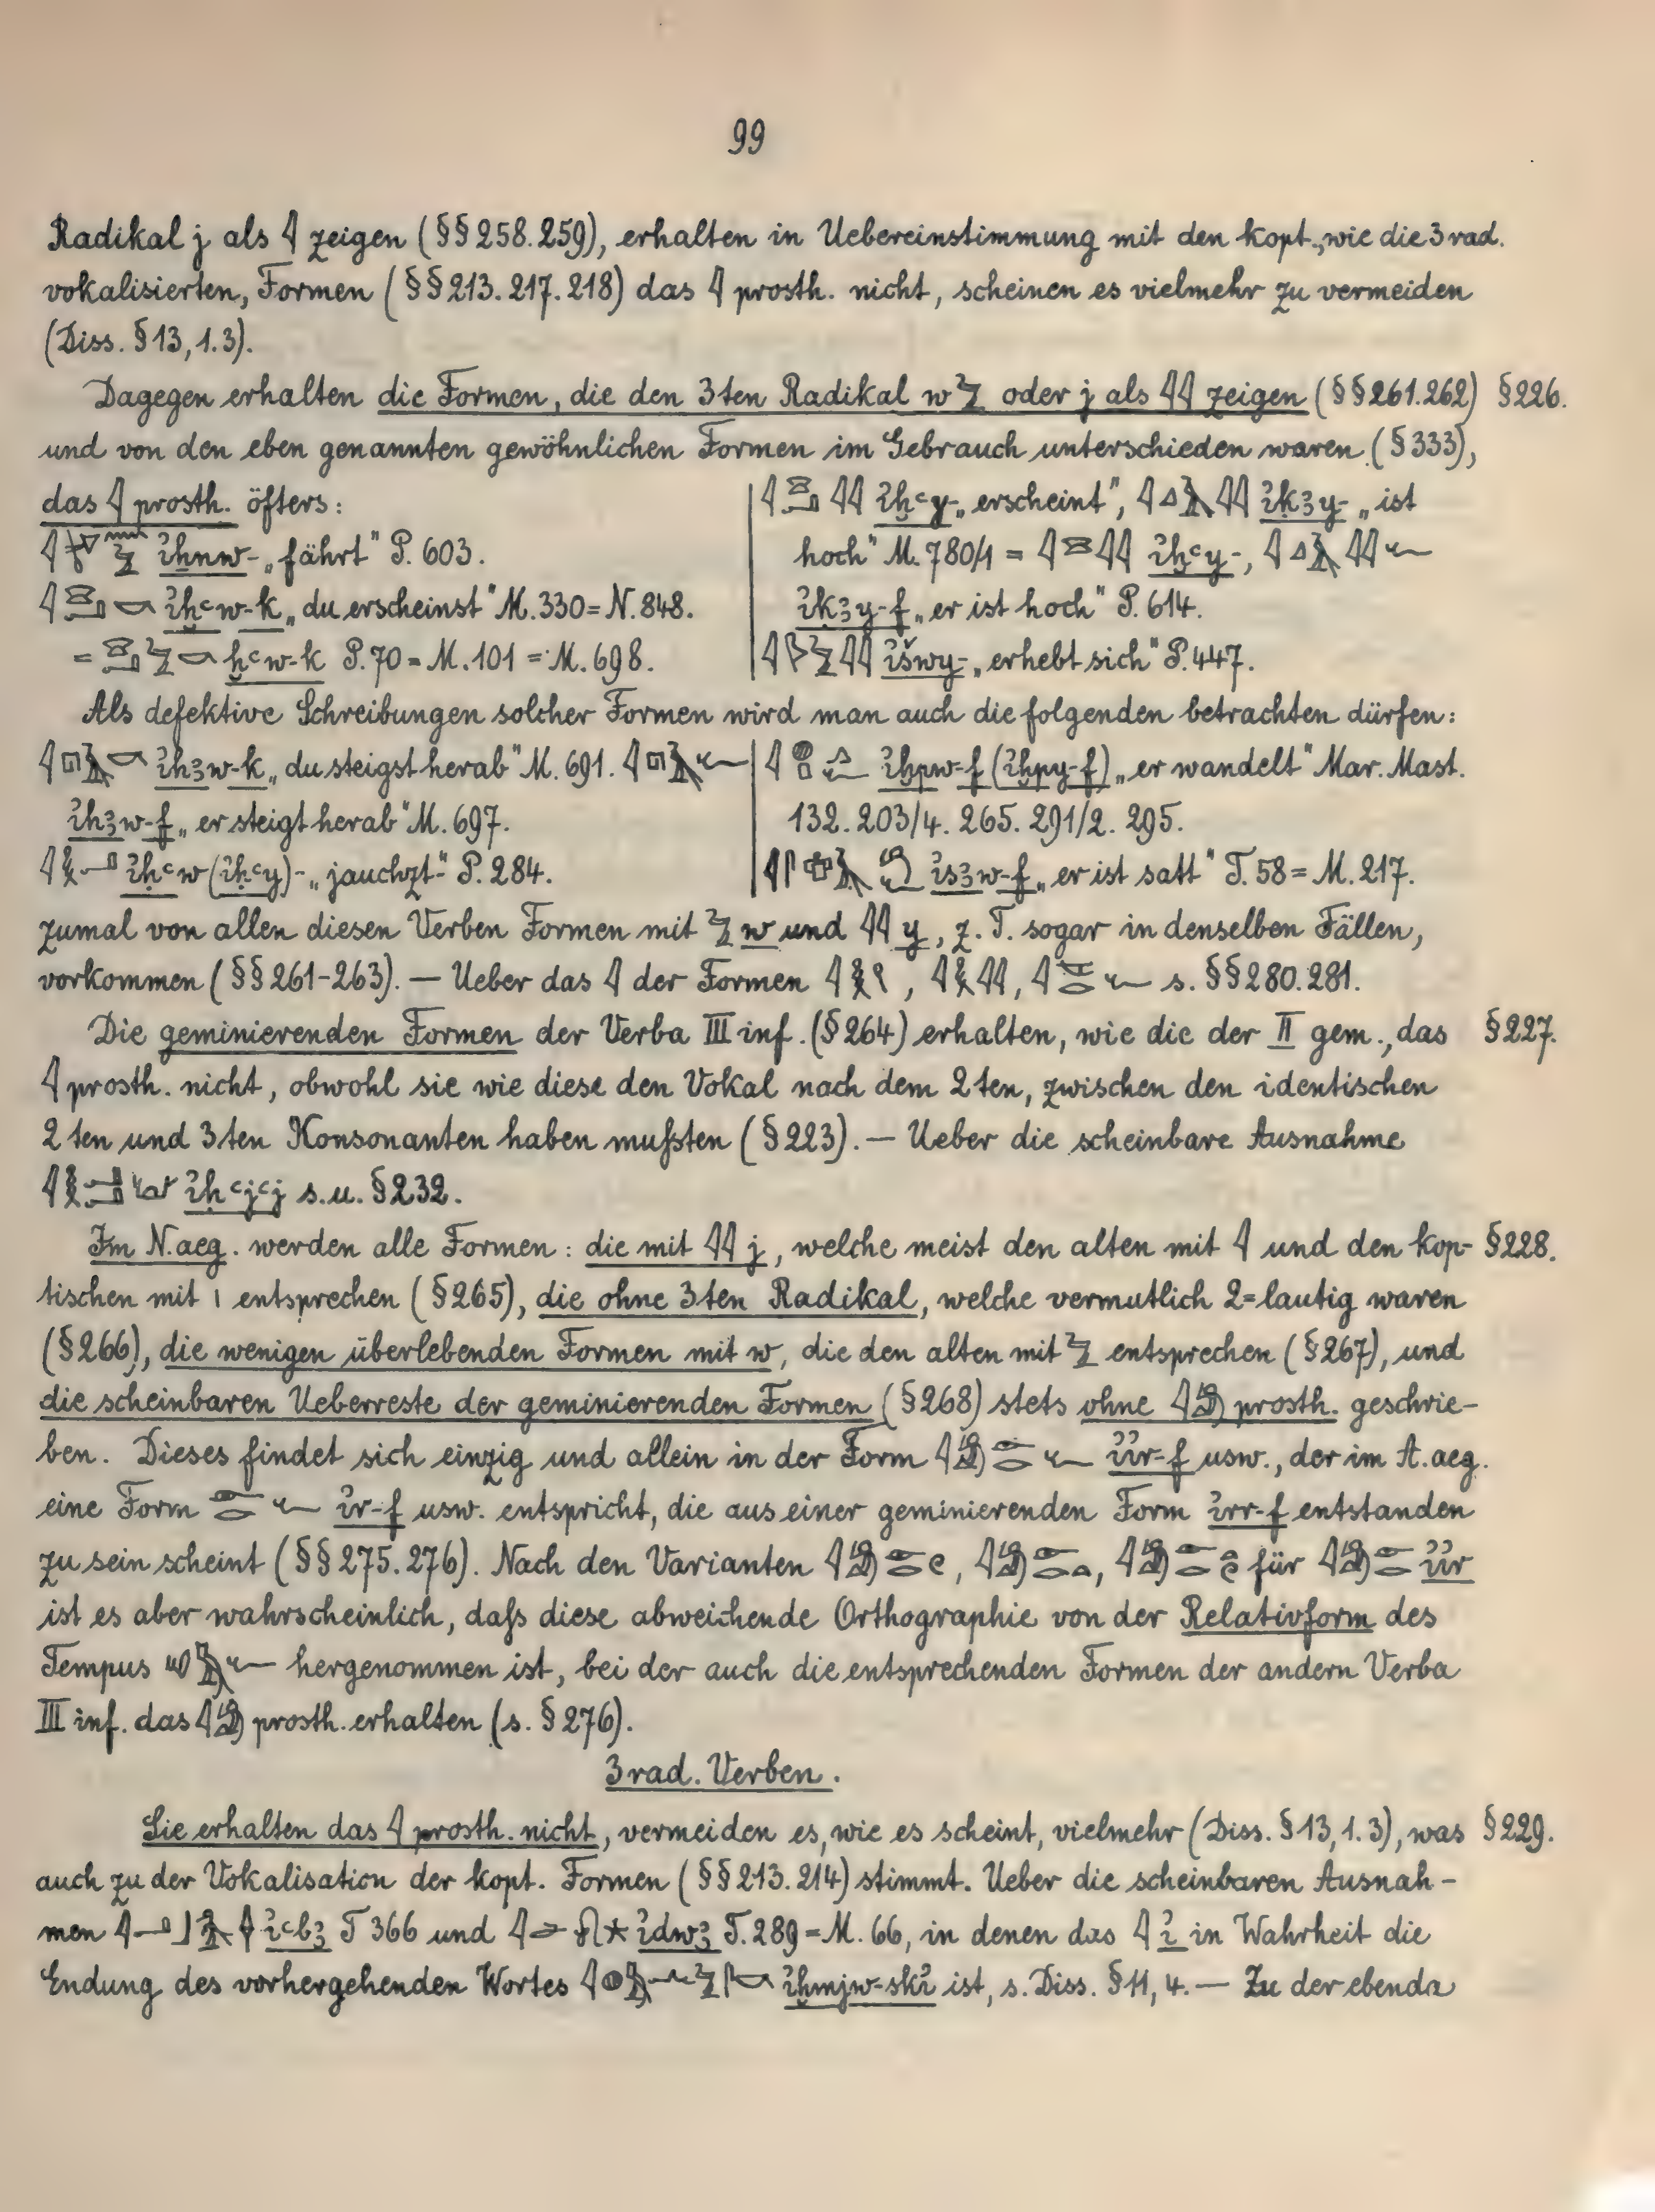 99
Radikal j als 𓇋 zeigen (§§ 258. 259), erhalten in Uebereinstimmung mit den kopt., wie die 3rad.
vokalisierten, Formen (§§ 213. 217. 218) das 𓇋 prosth. nicht, scheinen es vielmehr zu vermeiden
(Diss. § 13, 1. 3).
Dagegen erhalten die Formen, die den 3ten Radikal w 𓅱 oder j als 𓇋𓇋 zeigen (§§ 261. 262) § 226.
und von den eben genannten gewöhnlichen Formen im Gebrauch unterschieden waren (§ 333),
das 𓇋 prosth. öfters:
ἰḫnw- „fährt" P. 603.
ἰḫꜥw-k „du erscheinst" M. 330 = N. 848.
= ḫꜥw-k P. 70 = M. 101 = M. 698.
𓇋𓈍𓂝𓇋𓇋 ἰḫꜥy- „erscheint", 𓇋𓈎𓄿𓇋𓇋 ἰḳꜣy- „ist
hoch" M. 780/1 = 𓇋𓈍𓇋𓇋 ἰḫꜥy-, 𓇋𓈎𓄿𓇋𓇋𓆑
ἰḳꜣy-f „er ist hoch" P. 614.
𓇋𓆄𓅱𓇋𓇋 ἰšwy- „erhebt sich" P. 447.
Als defektive Schreibungen solcher Formen wird man auch die folgenden betrachten dürfen:
𓇋𓉔𓄿𓎡 ἰhꜣw-k „du steigst herab" M. 691. 𓇋𓉔𓄿𓆑
ἰhꜣw-f „er steigt herab" M. 697.
𓇋𓎛𓂝 ἰḥꜥw (ἰḥꜥy)- „jauchzt" P. 284.
𓇋𓐍𓊪𓂻𓆑 ἰḫpw-f (ἰḫpy-f) „er wandelt" Mar. Mast.
132. 203/4. 265. 291/2. 295.
ἰsꜣw-f „er ist satt" T. 58 = M. 217.
zumal von allen diesen Verben Formen mit 𓅱 w und 𓇋𓇋 y, z. T. sogar in denselben Fällen,
vorkommen (§§ 261-263). — Ueber das 𓇋 der Formen s. §§ 280. 281.
Die geminierenden Formen der Verba III inf. (§ 264) erhalten, wie die der II gem., das § 227.
𓇋 prosth. nicht, obwohl sie wie diese den Vokal nach dem 2ten, zwischen den identischen
2ten und 3ten Konsonanten haben mußten (§ 223). — Ueber die scheinbare Ausnahme
ἰḥꜥjꜥj s. u. § 232.
Im N. aeg. werden alle Formen: die mit 𓇋𓇋 j, welche meist den alten mit 𓇋 und den kop- § 228.
tischen mit ⲓ entsprechen (§ 265), die ohne 3ten Radikal, welche vermutlich 2=lautig waren
(§ 266), die wenigen überlebenden Formen mit w, die den alten mit 𓅱 entsprechen (§ 267), und
die scheinbaren Ueberreste der geminierenden Formen (§ 268) stets ohne 𓇋𓀁 prosth. geschrie-
ben. Dieses findet sich einzig und allein in der Form 𓇋𓀁𓁹𓂋𓆑 ἰἰr-f usw., der im A. aeg.
eine Form 𓁹𓂋𓆑 ἰr-f usw. entspricht, die aus einer geminierenden Form ἰrr-f entstanden
zu sein scheint (§§ 275. 276). Nach den Varianten 𓇋𓀁𓁹𓂋𓏲, 𓇋𓀁𓁹𓂋𓏏, 𓇋𓀁𓁹𓂋𓏏𓏲 für 𓇋𓀁𓁹𓂋 ἰἰr
ist es aber wahrscheinlich, daß diese abweichende Orthographie von der Relativform des
Tempus 𓄔𓅓𓆑 hergenommen ist, bei der auch die entsprechenden Formen der andern Verba
III inf. das 𓇋𓀁 prosth. erhalten (s. § 276).
3rad. Verben.
Sie erhalten das 𓇋 prosth. nicht, vermeiden es, wie es scheint, vielmehr (Diss. § 13, 1. 3), was § 229.
auch zu der Vokalisation der kopt. Formen (§§ 213. 214) stimmt. Ueber die scheinbaren Ausnah-
men ἰꜥbꜣ T 366 und ἰdwꜣ T. 289 = M. 66, in denen das 𓇋 ἰ in Wahrheit die
Endung des vorhergehenden Wortes ἰḫmjw-skἰ ist, s. Diss. § 11, 4. — Zu der ebenda